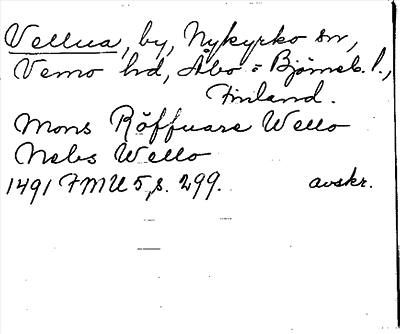 Vellua, by, Nykyrko sn,
Vemo hd, Åbo = Björneb. l.,
Finland.
Mons Röffuare Wello
Nebs Wello
1491 FMU 5, s. 299. avskr.